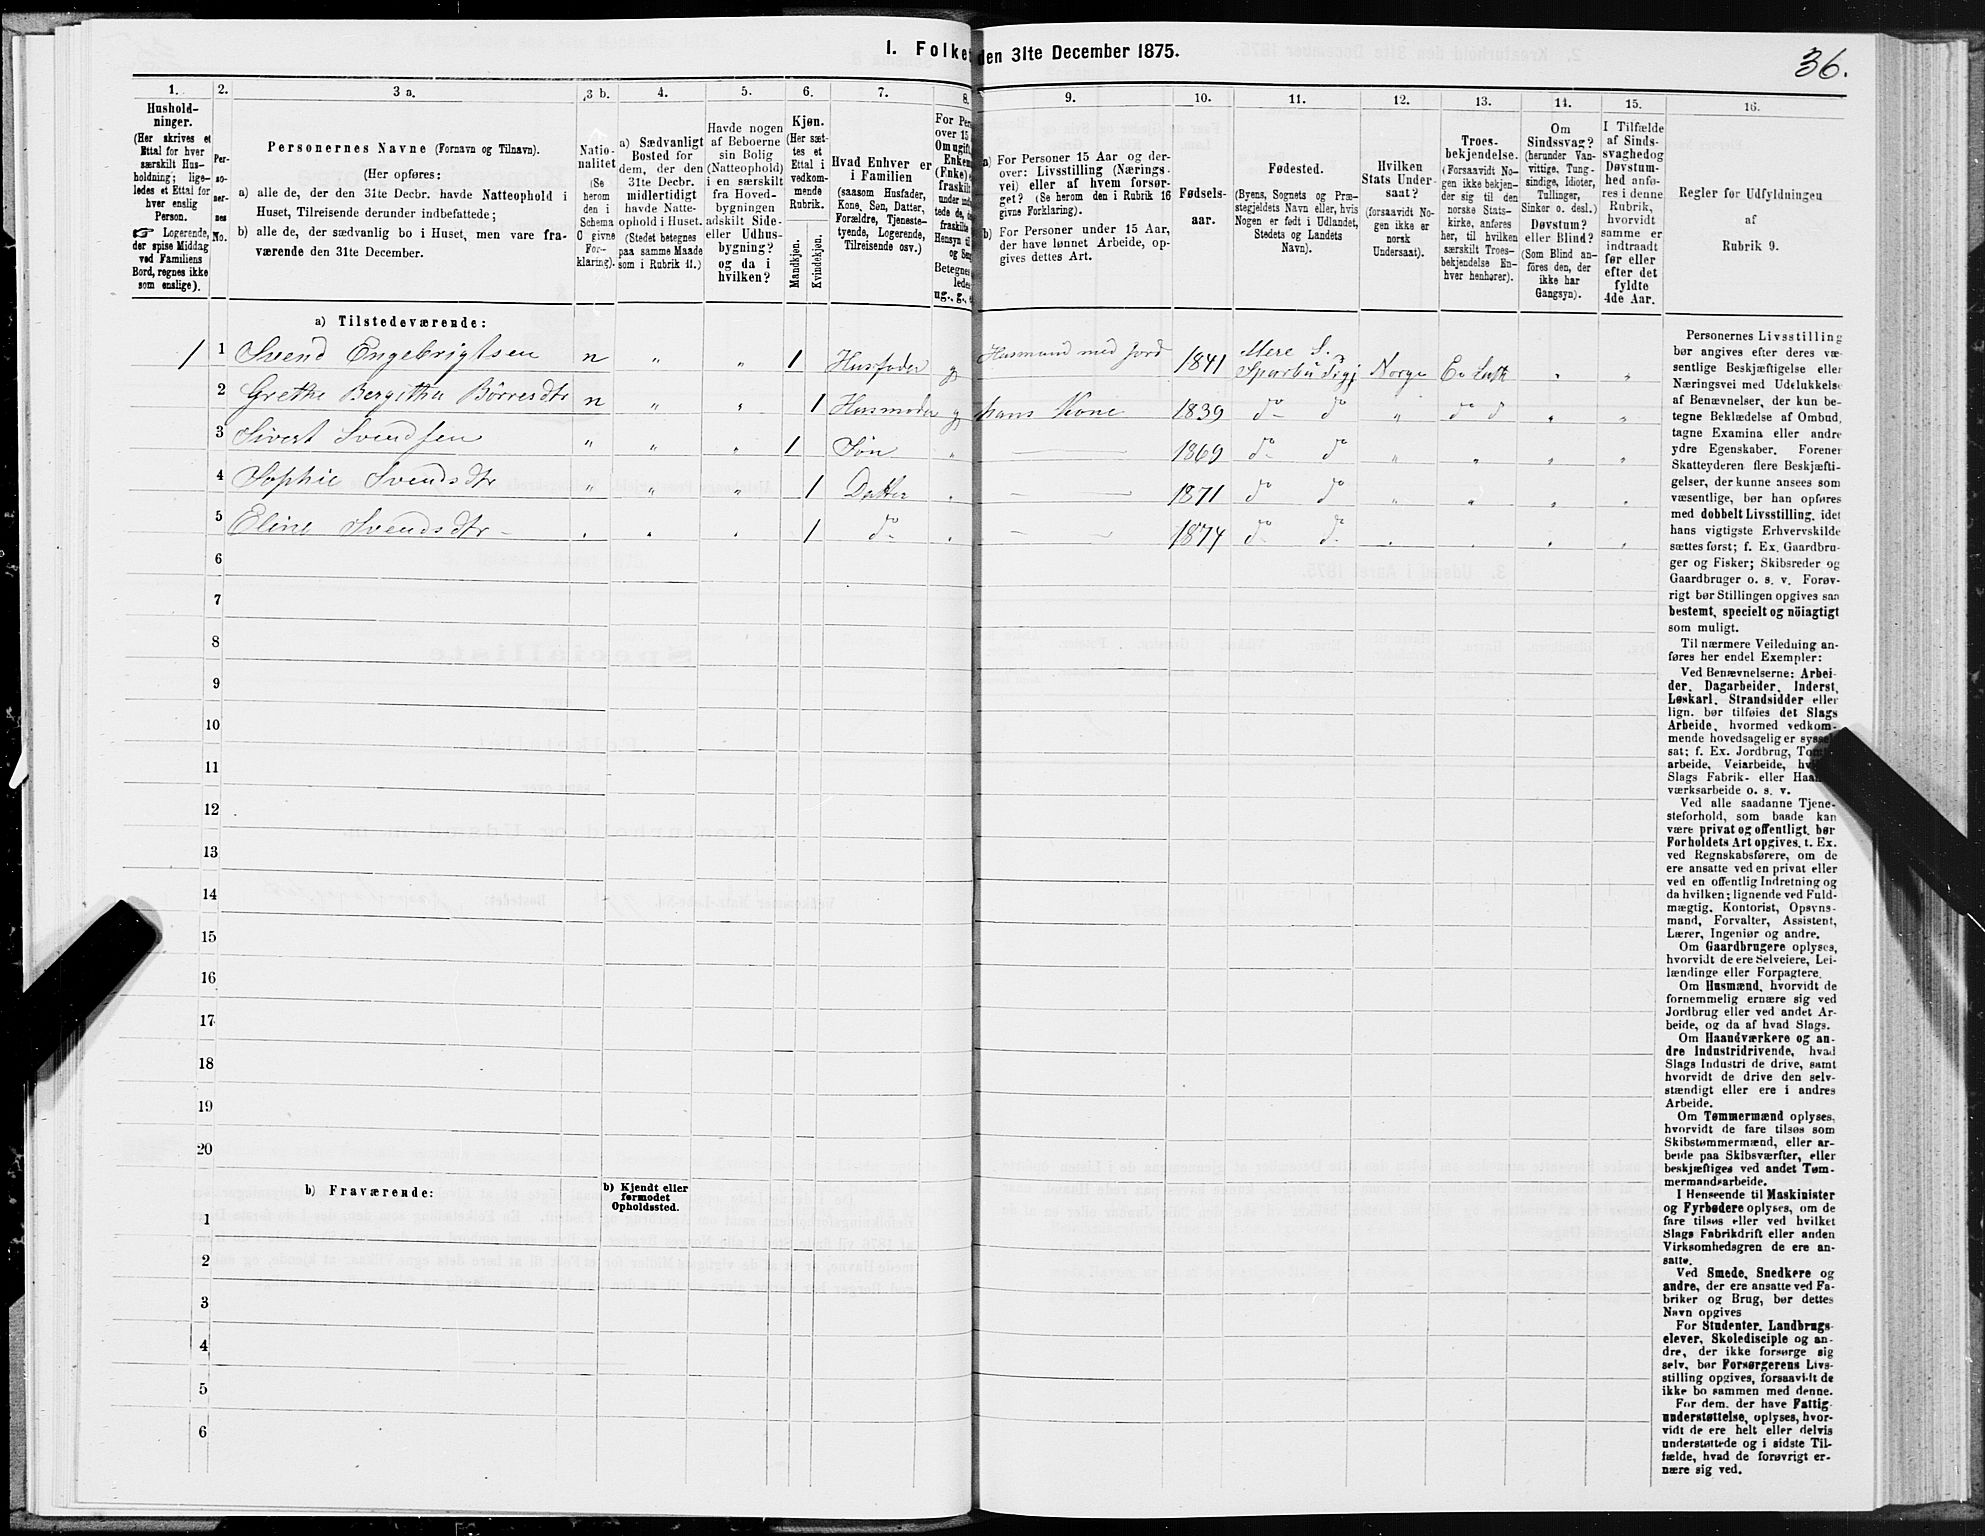 I. Folket den 31te December 1875.
36.
1.
Hushold-
ninger.
(Her skrives et
Ettal for hver
særskilt Hus-
holdning; lige-
ledes et Ettal for
hver enslig
Person.
☞ Logerende,
der spise Middag
ved Familiens
Bord, regnes ikke
som enslige).
2.
Per-
so-
ner-
nes
No.
3 a.
Personernes Navne (Fornavn og Tilnavn).
(Her opføres:
a) alle de, der den 31te Decbr. havde Natteophold i
Huset, Tilreisende derunder indbefattede;
b) alle de, der sædvanlig bo i Huset, men vare fra-
værende den 31te December.
3 b.
Natio-
nalitet
(Se
herom
den i
Schema
C givne
For-
klaring).
4.
a) Sædvanligt
Bosted for
dem, der den
31te Decbr.
midlertidigt
havde Natte-
ophold i Huset.
(Stedet betegnes
paa samme Maade
som i Rubrik 11.)
5.
Havde nogen
af Beboerne
sin Bolig
(Natteophold)
i en særskilt
fra Hoved-
bygningen
adskilt Side-
eller Udhus-
bygning?
og da i
hvilken?
6.
Kjøn.
(Her sæt-
tes et
Ettal i
vedkom-
mende
Rubrik.
Mandkjøn.
Kvindekjøn.
7.
Hvad Enhver er
i Familien
(saasom Husfader,
Kone, Søn, Datter,
Forældre, Tjeneste-
tyende, Logerende,
Tilreisende osv.)
8.
For Per
over 15
Om ugift,
Enkem
(Enke)
fraskilt
under ind
tede de,
fraskilte
Hensyn til
og Sen
Betegnes
ledes
ug., g.,
9.
a) For Personer 15 Aar og der-
over: Livsstilling (Nærings-
vei) eller af hvem forsør-
get? (Se herom den i Rubrik 16
givne Forklaring).
b) For Personer under 15 Aar,
der have lønnet Arbeide, op-
gives dettes Art.
10.
Fødsels-
aar.
11.
Fødested.
(Byens, Sognets og Præ-
stegjeldets Navn eller, hvis
Nogen er født i Udlandet,
Stedets og Landets
Navn).
12.
Hvilken
Stats Under-
saat?
(forsaavidt No-
gen ikke er
norsk
Undersaat).
13.
Troes-
bekjendelse.
(Forsaavidt No-
gen ikke bekjen-
der sig til den
norske Stats-
kirke, anføres
her, til hvilken
særskilt Troes-
bekjendelse En-
hver henhører).
14.
Om
Sindssvag?
(herunder Van-
vittige, Tung-
sindige, Idioter,
Tullinger,
Sinker o. desl.)
Døvstum?
eller Blind?
(Som Blind an-
føres den, der
ikke har
Gangsyn).
15.
I Tilfælde
af Sinds-
svaghed og
Døvstum-
hed anfø-
res i denne
Rubrik,
hvorvidt
samme er
indtraadt
før eller
efter det
fyldte
4de Aar.
16.
Regler for Udfyldningen
af
Rubrik 9.
a) Tilstedeværende:
1 1 Svend Engebrigtsen n " " 1 Husfader g Husmand med Jord 1841 Mere S. Sparbu Prgj Norge Ev Luth " "
2 Grethe Bergitha Börresdtr n " " 1 Husmoder g hans Kone 1839 do do " do do " "
3 Sivert Svendsen " " " 1 Søn " — 1869 do do " " " "
4 Sophie Svendsdtr " " " 1 Datter " — 1871 do do " " " "
5 Eline Svendsdtr - " " " 1 do " — 1874 do do " " " "
6
7
8
9
10
11
12
13
14
15
16
17
18
19
20
b) Fraværende:
b) Kjendt eller
formodet
Opholdssted.
1
2
3
4
5
6
Personernes Livsstilling
bør angives efter deres væ-
sentlige Beskjæftigelse eller
Næringsvei med Udelukkelse
af Benævnelser, der kun be-
tegne Beklædelse af Ombud,
tagne Examina eller andre
ydre Egenskaber. Forener
Skatteyderen flere Beskjæfti-
gelser, der kunne ansees som
væsentlige, bør han opføres
med dobbelt Livsstilling, idet
hans vigtigste Erhvervskilde
sættes først; f. Ex. Gaardbru-
ger og Fisker; Skibsreder og
Gaardbruger o. s. v. Forøv-
rigt bør Stillingen opgives saa
bestemt, specielt og nöiagtigt
som muligt.
Til nærmere Veiledning an-
føres her endel Exempler:
Ved Benævnelserne: Arbei-
der, Dagarbeider, Inderst,
Løskarl, Strandsidder eller
lign. bør tilføies det Slags
Arbeide, hvormed vedkom-
mende hovedsagelig er syssel-
sat; f. Ex. Jordbrug, Tom
arbeide, Veiarbeide, hv
Slags Fabrik- eller Haa
værksarbeide o. s. v.
Ved alle saadanne Tjene-
steforhold, som baade kan
være privat og offentligt, bør
Forholdets Art opgives, t. Ex.
ved Regnskabsførere, om de
ere ansatte ved en privat eller
ved en offentlig Indretning og
da hvilken; lignende ved Fuld-
mægtig, Kontorist, Opsyns-
mand, Forvalter, Assistent,
Lærer, Ingeniør og andre.
Om Gaardbrugere oplyses,
hvorvidt de ere Selveiere, Lei-
lændinge eller Forpagtere.
Om Husmænd, hvorvidt de
fornemmelig ernære sig ved
Jordbrug eller ved andet Ar-
beide, og da af hvad Slags.
Om Haandværkere og an-
dre Industridrivende, hvad
Slags Industri de drive, samt
hvorvidt de drive den selv-
stændigt eller ere i andres
Arbeide.
Om Tømmermænd oplyses,
hvorvidt de fare tilsøs som
Skibstømmermænd, eller ar-
beide paa Skibsværfter, eller
beskjæftiges ved andet Tøm-
mermandsarbeide.
I Henseende til Maskinister
og Fyrbødere oplyses, om de
fare tilsøs eller ved hvilket
Slags Fabrikdrift eller anden
Virksomhedsgren de ere an-
satte.
Ved Smede, Snedkere og
andre, der ere ansatte ved Fa-
briker og Brug, bør dettes
Navn opgives
For Studenter, Landbrugs-
elever, Skoledisciple og an-
dre, der ikke forsørge sig
selv, bør Forsørgerens Livs-
stilling opgives, forsaavidt de
ikke bo sammen med denne.
For dem, der have Fattig-
understøttelse, oplyses, hvor-
vidt de ere helt eller delvis
understøttede og i sidste Til-
fælde, hvad de forøvrigt er-
nære sig ved.